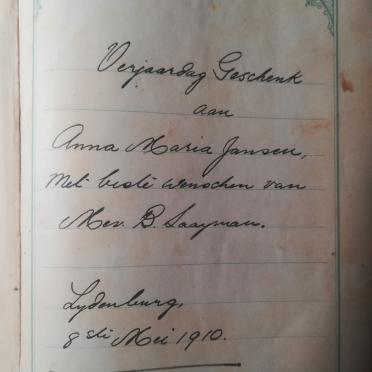 Verjaardag Geschenk
aan
Anna Maria Jansen,
Met beste wenschen van
Mev. B. Laayman.
Lydenburg,
8ste Mei 1910.